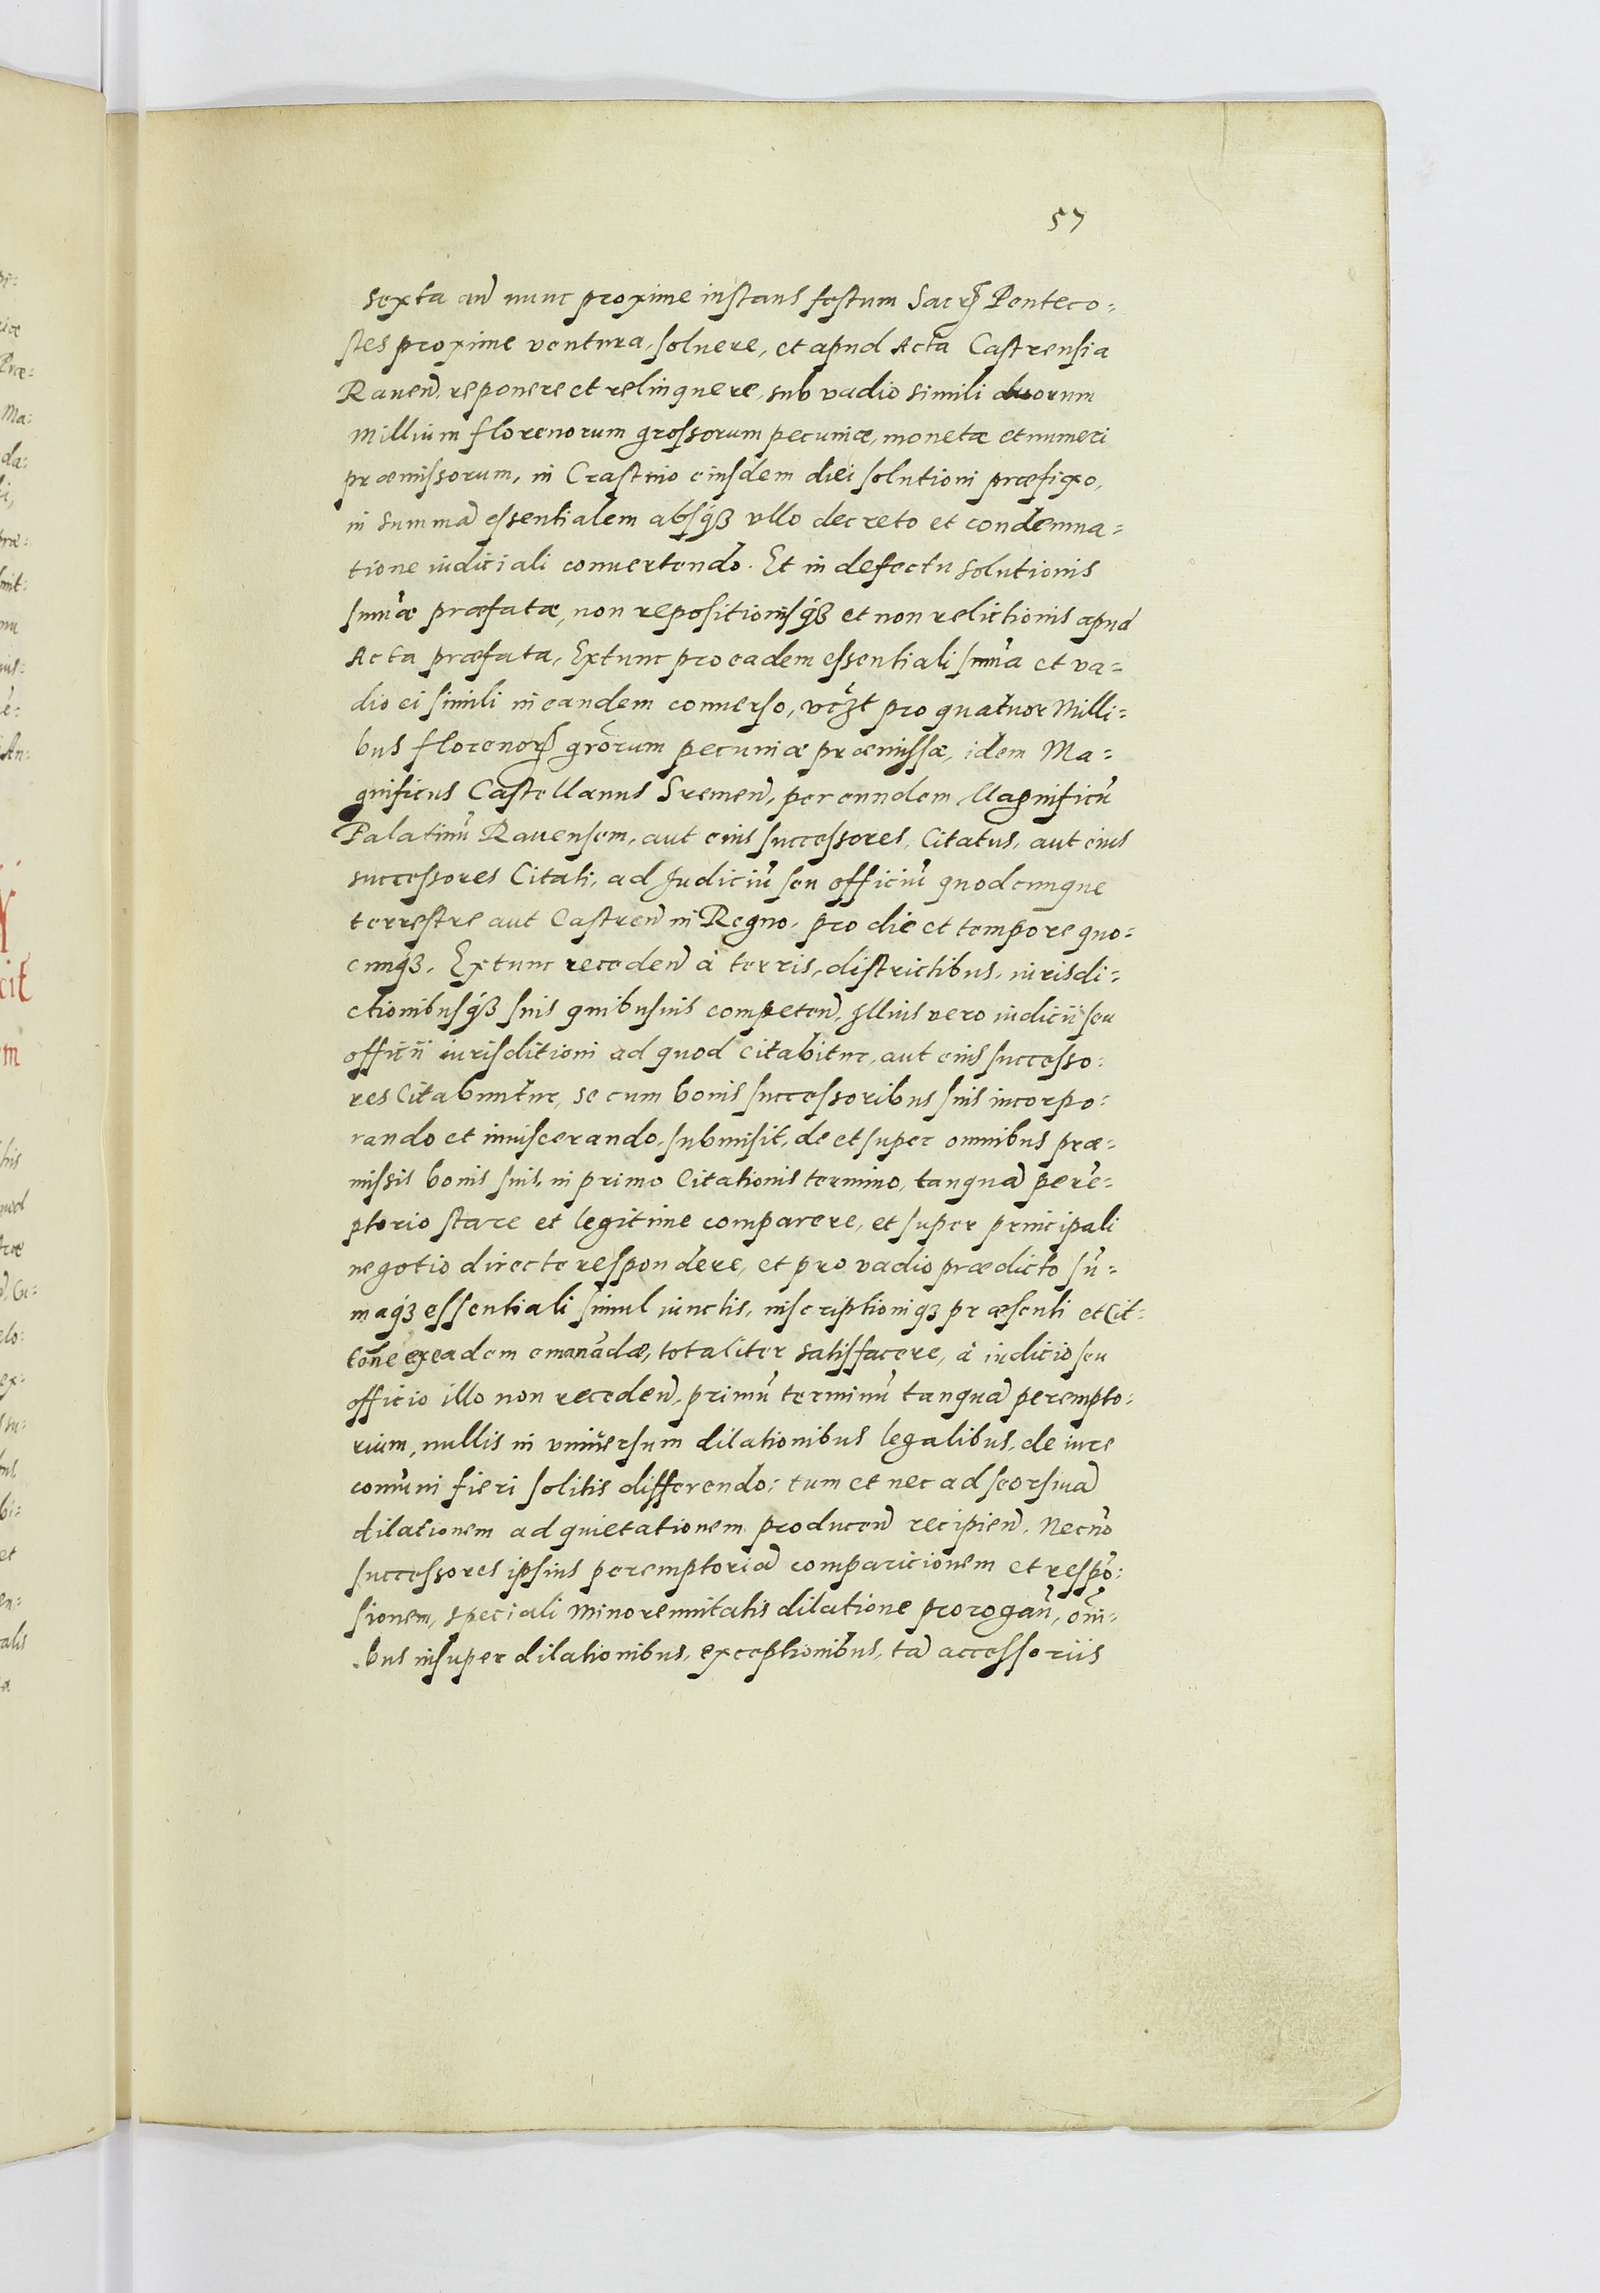 57
sexta an̄ nunc proxime instans festum Sacrꝝ Penteco:
stes proxime ventura, soluere, et apud Acta Castrensia
Rauen̄, reponere et relinquere, sub vadio simili duorum
Millium florenorum grossorum pecuniæ, monetæ et numeri
præmissorum, in Crastino eiusdem diei solutioni præfixo,
in summā essentialem absqꝫ vllo decreto et condemna:
tione iudiciali conuertendo. Et in defectu solutionis
sum̄æ præfatæ, non repositionisqꝫ et non relictionis apud
Acta præfata, Extunc pro eadem essentiali sum̄a et va:
dio ei simili in eandem conuerso, vcꝫt pro quatuor Milli:
bus florenorꝝ gr̄orum pecuniæ præmissæ, idem Ma:
gnificus Castellanus Sremen̄, per eundem Magnificū
Palatinū Rauensem, aut eius successores, Citatus, aut eius
successores Citati, ad Judiciū seu officiū quodcunque
terrestre aut Castren̄ in Regno, pro die et tempore quo:
cunqꝫ, Extunc receden̄ à terris, districtibus, iurisdi:
ctionibusqꝫ suis quibusuis competen̄, Illius vero iudicii seu
officii iurisditioni ad quod citabitur, aut eius successo:
res Citabuntur, se cum bonis successoribus suis incorpo:
rando et inuiscerando, submisit, de et super omnibus præ:
missis bonis suis, in primo Citationis termino, tanquā perē:
ptorio stare et legitime comparere, et super principali
negotio directe respondere, et pro vadio prædicto sū:
maqꝫ essentiali simul iunctis, inscriptioniqꝫ præsenti et Cit:
tōne ex eadem emanādæ, totaliter satisfacere, à iudicio seu
officio illo non receden̄, primū terminū tanquā perempto:
rium, nullis in vniuersum dilationibus legalibus, de iure
com̄uni fieri solitis differendo: tum et nec ad seorsiuā
dilationem ad quietationem producen̄ recipien̄, Necn̄o
successores ipsius peremptoriā comparicionem et respō:
sionem, speciali minorennitatis dilatione prorogan̄, om̄i:
bus insuper dilationibus, exceptionibus, tā accessoriis